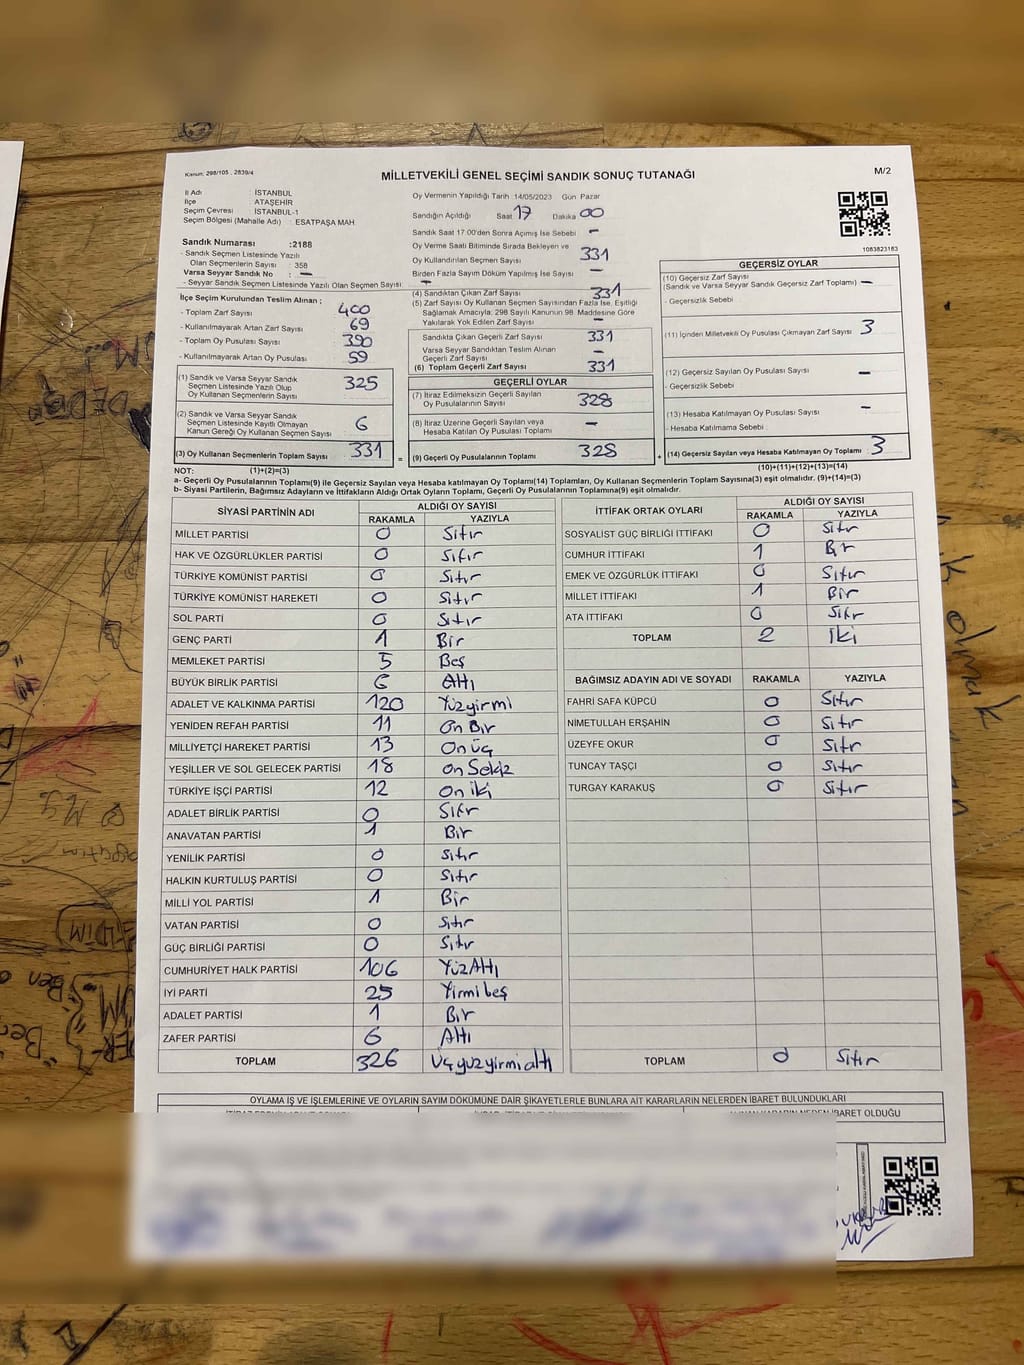 Kanun: 298/105 , 2839/4
MİLLETVEKİLİ GENEL SEÇİMİ SANDIK SONUÇ TUTANAĞI
M/2
İl Adı : İSTANBUL
İlçe : ATAŞEHİR
Seçim Çevresi : İSTANBUL-1
Seçim Bölgesi (Mahalle Adı) : ESATPAŞA MAH
Sandık Numarası :2188
- Sandık Seçmen Listesinde Yazılı
Olan Seçmenlerin Sayısı : 358
Varsa Seyyar Sandık No : —
- Seyyar Sandık Seçmen Listesinde Yazılı Olan Seçmen Sayısı: —
İlçe Seçim Kurulundan Teslim Alınan ;
- Toplam Zarf Sayısı 400
- Kullanılmayarak Artan Zarf Sayısı 69
- Toplam Oy Pusulası Sayısı 390
- Kullanılmayarak Artan Oy Pusulası 59
(1) Sandık ve Varsa Seyyar Sandık
Seçmen Listesinde Yazılı Olup
Oy Kullanan Seçmenlerin Sayısı 325
(2) Sandık ve Varsa Seyyar Sandık
Seçmen Listesinde Kayıtlı Olmayan
Kanun Gereği Oy Kullanan Seçmen Sayısı 6
(3) Oy Kullanan Seçmenlerin Toplam Sayısı 331 =
Oy Vermenin Yapıldığı Tarih 14/05/2023 Gün Pazar
Sandığın Açıldığı Saat 17 Dakika 00
Sandık Saat 17:00'den Sonra Açımış İse Sebebi —
Oy Verme Saati Bitiminde Sırada Bekleyen ve
Oy Kullandırılan Seçmen Sayısı 331
Birden Fazla Sayım Döküm Yapılmış İse Sayısı —
(4) Sandıktan Çıkan Zarf Sayısı 331
(5) Zarf Sayısı Oy Kullanan Seçmen Sayısından Fazla İse, Eşitliği
Sağlamak Amacıyla; 298 Sayılı Kanunun 98. Maddesine Göre
Yakılarak Yok Edilen Zarf Sayısı —
Sandıkta Çıkan Geçerli Zarf Sayısı 331
Varsa Seyyar Sandıktan Teslim Alınan
Geçerli Zarf Sayısı —
(6) Toplam Geçerli Zarf Sayısı 331
GEÇERLİ OYLAR
(7) İtiraz Edilmeksizin Geçerli Sayılan
Oy Pusulalarının Sayısı 328
(8) İtiraz Üzerine Geçerli Sayılan veya
Hesaba Katılan Oy Pusulası Toplamı —
(9) Geçerli Oy Pusulalarının Toplamı 328 +
1083823183
GEÇERSİZ OYLAR
(10) Geçersiz Zarf Sayısı
(Sandık ve Varsa Seyyar Sandık Geçersiz Zarf Toplamı) —
- Geçersizlik Sebebi
(11) İçinden Milletvekili Oy Pusulası Çıkmayan Zarf Sayısı 3
(12) Geçersiz Sayılan Oy Pusulası Sayısı —
- Geçersizlik Sebebi
(13) Hesaba Katılmayan Oy Pusulası Sayısı —
- Hesaba Katılmama Sebebi
(14) Geçersiz Sayılan veya Hesaba Katılmayan Oy Toplamı 3
NOT: (1)+(2)=(3) (10)+(11)+(12)+(13)=(14)
a- Geçerli Oy Pusulalarının Toplamı(9) ile Geçersiz Sayılan veya Hesaba katılmayan Oy Toplamı(14) Toplamları, Oy Kullanan Seçmenlerin Toplam Sayısına(3) eşit olmalıdır. (9)+(14)=(3)
b- Siyasi Partilerin, Bağımsız Adayların ve İttifakların Aldığı Ortak Oyların Toplamı, Geçerli Oy Pusulalarının Toplamına(9) eşit olmalıdır.
SİYASİ PARTİNİN ADI ALDIĞI OY SAYISI
RAKAMLA YAZIYLA
MİLLET PARTİSİ 0 Sıfır
HAK VE ÖZGÜRLÜKLER PARTİSİ 0 Sıfır
TÜRKİYE KOMÜNİST PARTİSİ 0 Sıfır
TÜRKİYE KOMÜNİST HAREKETİ 0 Sıfır
SOL PARTİ 0 Sıfır
GENÇ PARTİ 1 Bir
MEMLEKET PARTİSİ 5 Beş
BÜYÜK BİRLİK PARTİSİ 6 Altı
ADALET VE KALKINMA PARTİSİ 120 Yüzyirmi
YENİDEN REFAH PARTİSİ 11 On Bir
MİLLİYETÇİ HAREKET PARTİSİ 13 On üç
YEŞİLLER VE SOL GELECEK PARTİSİ 18 on Sekiz
TÜRKİYE İŞÇİ PARTİSİ 12 On iki
ADALET BİRLİK PARTİSİ 0 Sıfır
ANAVATAN PARTİSİ 1 Bir
YENİLİK PARTİSİ 0 Sıfır
HALKIN KURTULUŞ PARTİSİ 0 Sıfır
MİLLİ YOL PARTİSİ 1 Bir
VATAN PARTİSİ 0 Sıfır
GÜÇ BİRLİĞİ PARTİSİ 0 Sıfır
CUMHURİYET HALK PARTİSİ 106 YüzAltı
İYİ PARTİ 25 Yirmi beş
ADALET PARTİSİ 1 Bir
ZAFER PARTİSİ 6 Altı
TOPLAM 326 Üçyüzyirmialtı
İTTİFAK ORTAK OYLARI ALDIĞI OY SAYISI
RAKAMLA YAZIYLA
SOSYALİST GÜÇ BİRLİĞİ İTTİFAKI 0 Sıfır
CUMHUR İTTİFAKI 1 Bir
EMEK VE ÖZGÜRLÜK İTTİFAKI 0 Sıfır
MİLLET İTTİFAKI 1 Bir
ATA İTTİFAKI 0 Sıfır
TOPLAM 2 İki
BAĞIMSIZ ADAYIN ADI VE SOYADI RAKAMLA YAZIYLA
FAHRİ SAFA KÜPCÜ 0 Sıfır
NİMETULLAH ERŞAHİN 0 Sıfır
ÜZEYFE OKUR 0 Sıfır
TUNCAY TAŞÇI 0 Sıfır
TURGAY KARAKUŞ 0 Sıfır
TOPLAM 0 Sıfır
OYLAMA İŞ VE İŞLEMLERİNE VE OYLARIN SAYIM DÖKÜMÜNE DAİR ŞİKAYETLERLE BUNLARA AİT KARARLARIN NELERDEN İBARET BULUNDUKLARI
ALINAN KARARIN NEDEN İBARET OLDUĞU